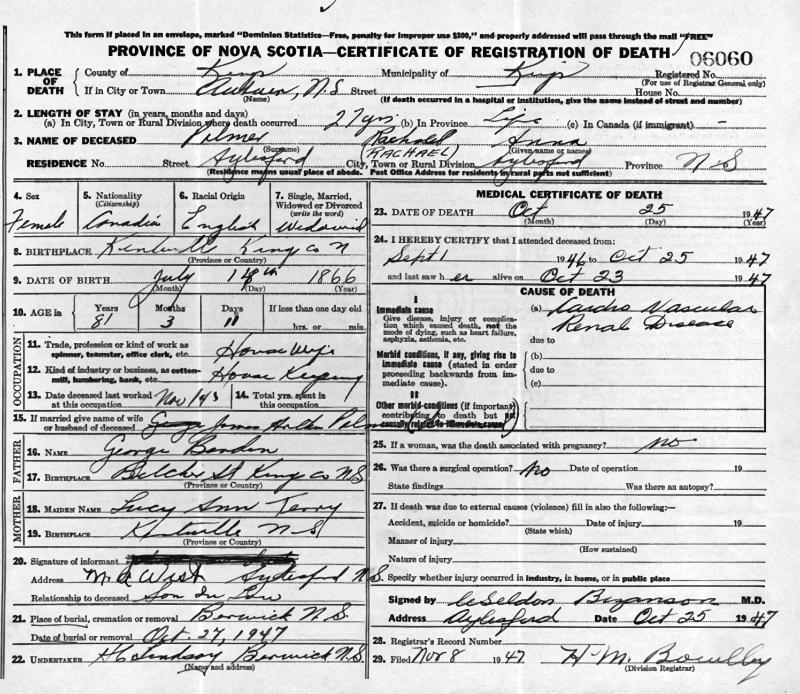 This form if placed in an envelope, marked "Dominion Statistics—Free, penalty for improper use $300," and properly addressed will pass through the mail "FREE"
PROVINCE OF NOVA SCOTIA—CERTIFICATE OF REGISTRATION OF DEATH
06060
1. PLACE OF DEATH County of Kings Municipality of Kings Registered No.
(For use of Registrar General only)
If in City or Town N.S Street House No.
(Name) (If death occurred in a hospital or institution, give the name instead of street and number)
2. LENGTH OF STAY (in years, months and days)
(a) In City, Town or Rural Division where death occurred 27 yrs (b) In Province Life (c) In Canada (if immigrant) —
3. NAME OF DECEASED Palmer Rachael Anna
(Surname) (RACHAEL) (Given name or names)
RESIDENCE No. Street Aylesford City, Town or Rural Division Aylesford Province N-S
(Residence means usual place of abode. Post Office Address for residents in rural parts not sufficient)
4. Sex Female
5. Nationality (Citizenship) Canadia
6. Racial Origin English
7. Single, Married, Widowed or Divorced (write the word) Widowed
8. BIRTHPLACE Kentville King co N
(Province or Country)
9. DATE OF BIRTH July 14th 1866
(Month) (Day) (Year)
10. AGE in Years 81 Months 3 Days 11 If less than one day old hrs. or min.
OCCUPATION
11. Trade, profession or kind of work as spinner, teamster, office clerk, etc. House Wife
12. Kind of industry or business, as cotton-mill, lumbering, bank, etc. House Keeping
13. Date deceased last worked at this occupation Nov 14. Total yrs. spent in this occupation
15. If married give name of wife or husband of deceased James Palmer
FATHER
16. NAME George Borden
17. BIRTHPLACE Belcher St King co N.S
(Province or Country)
MOTHER
18. MAIDEN NAME Lucy Ann Terry
19. BIRTHPLACE Kentville N-S
(Province or Country)
20. Signature of informant
Address M. A West Aylesford N.S.
Relationship to deceased Son in Law
21. Place of burial, cremation or removal Berwick N.S.
Date of burial or removal Oct. 27, 1947
22. UNDERTAKER H Lindsay Berwick N.S.
(Name and address)
MEDICAL CERTIFICATE OF DEATH
23. DATE OF DEATH Oct 25 1947
(Month) (Day) (Year)
24. I HEREBY CERTIFY that I attended deceased from:
Sept 1 1946 to Oct 25 1947
and last saw her alive on Oct 23 1947
CAUSE OF DEATH
I
Immediate cause
Give disease, injury or complication which caused death, not the mode of dying, such as heart failure, asphyxia, asthenia, etc.
(a) Cardio Vascular Renal Disease
due to
Morbid conditions, if any, giving rise to immediate cause (stated in order proceeding backwards from immediate cause).
(b)
due to
(c)
II
Other morbid conditions (if important) contributing to death but not causally related to immediate cause
25. If a woman, was the death associated with pregnancy? no
26. Was there a surgical operation? No Date of operation 19
State findings Was there an autopsy?
27. If death was due to external causes (violence) fill in also the following:—
Accident, suicide or homicide? Date of injury 19
(State which)
Manner of injury
(How sustained)
Nature of injury
Specify whether injury occurred in industry, in home, or in public place
Signed by Seldon Bryanson M.D.
Address Aylesford Date Oct 25 1947
28. Registrar's Record Number
29. Filed Nov 8 1947 H M. Bowlby
(Division Registrar)